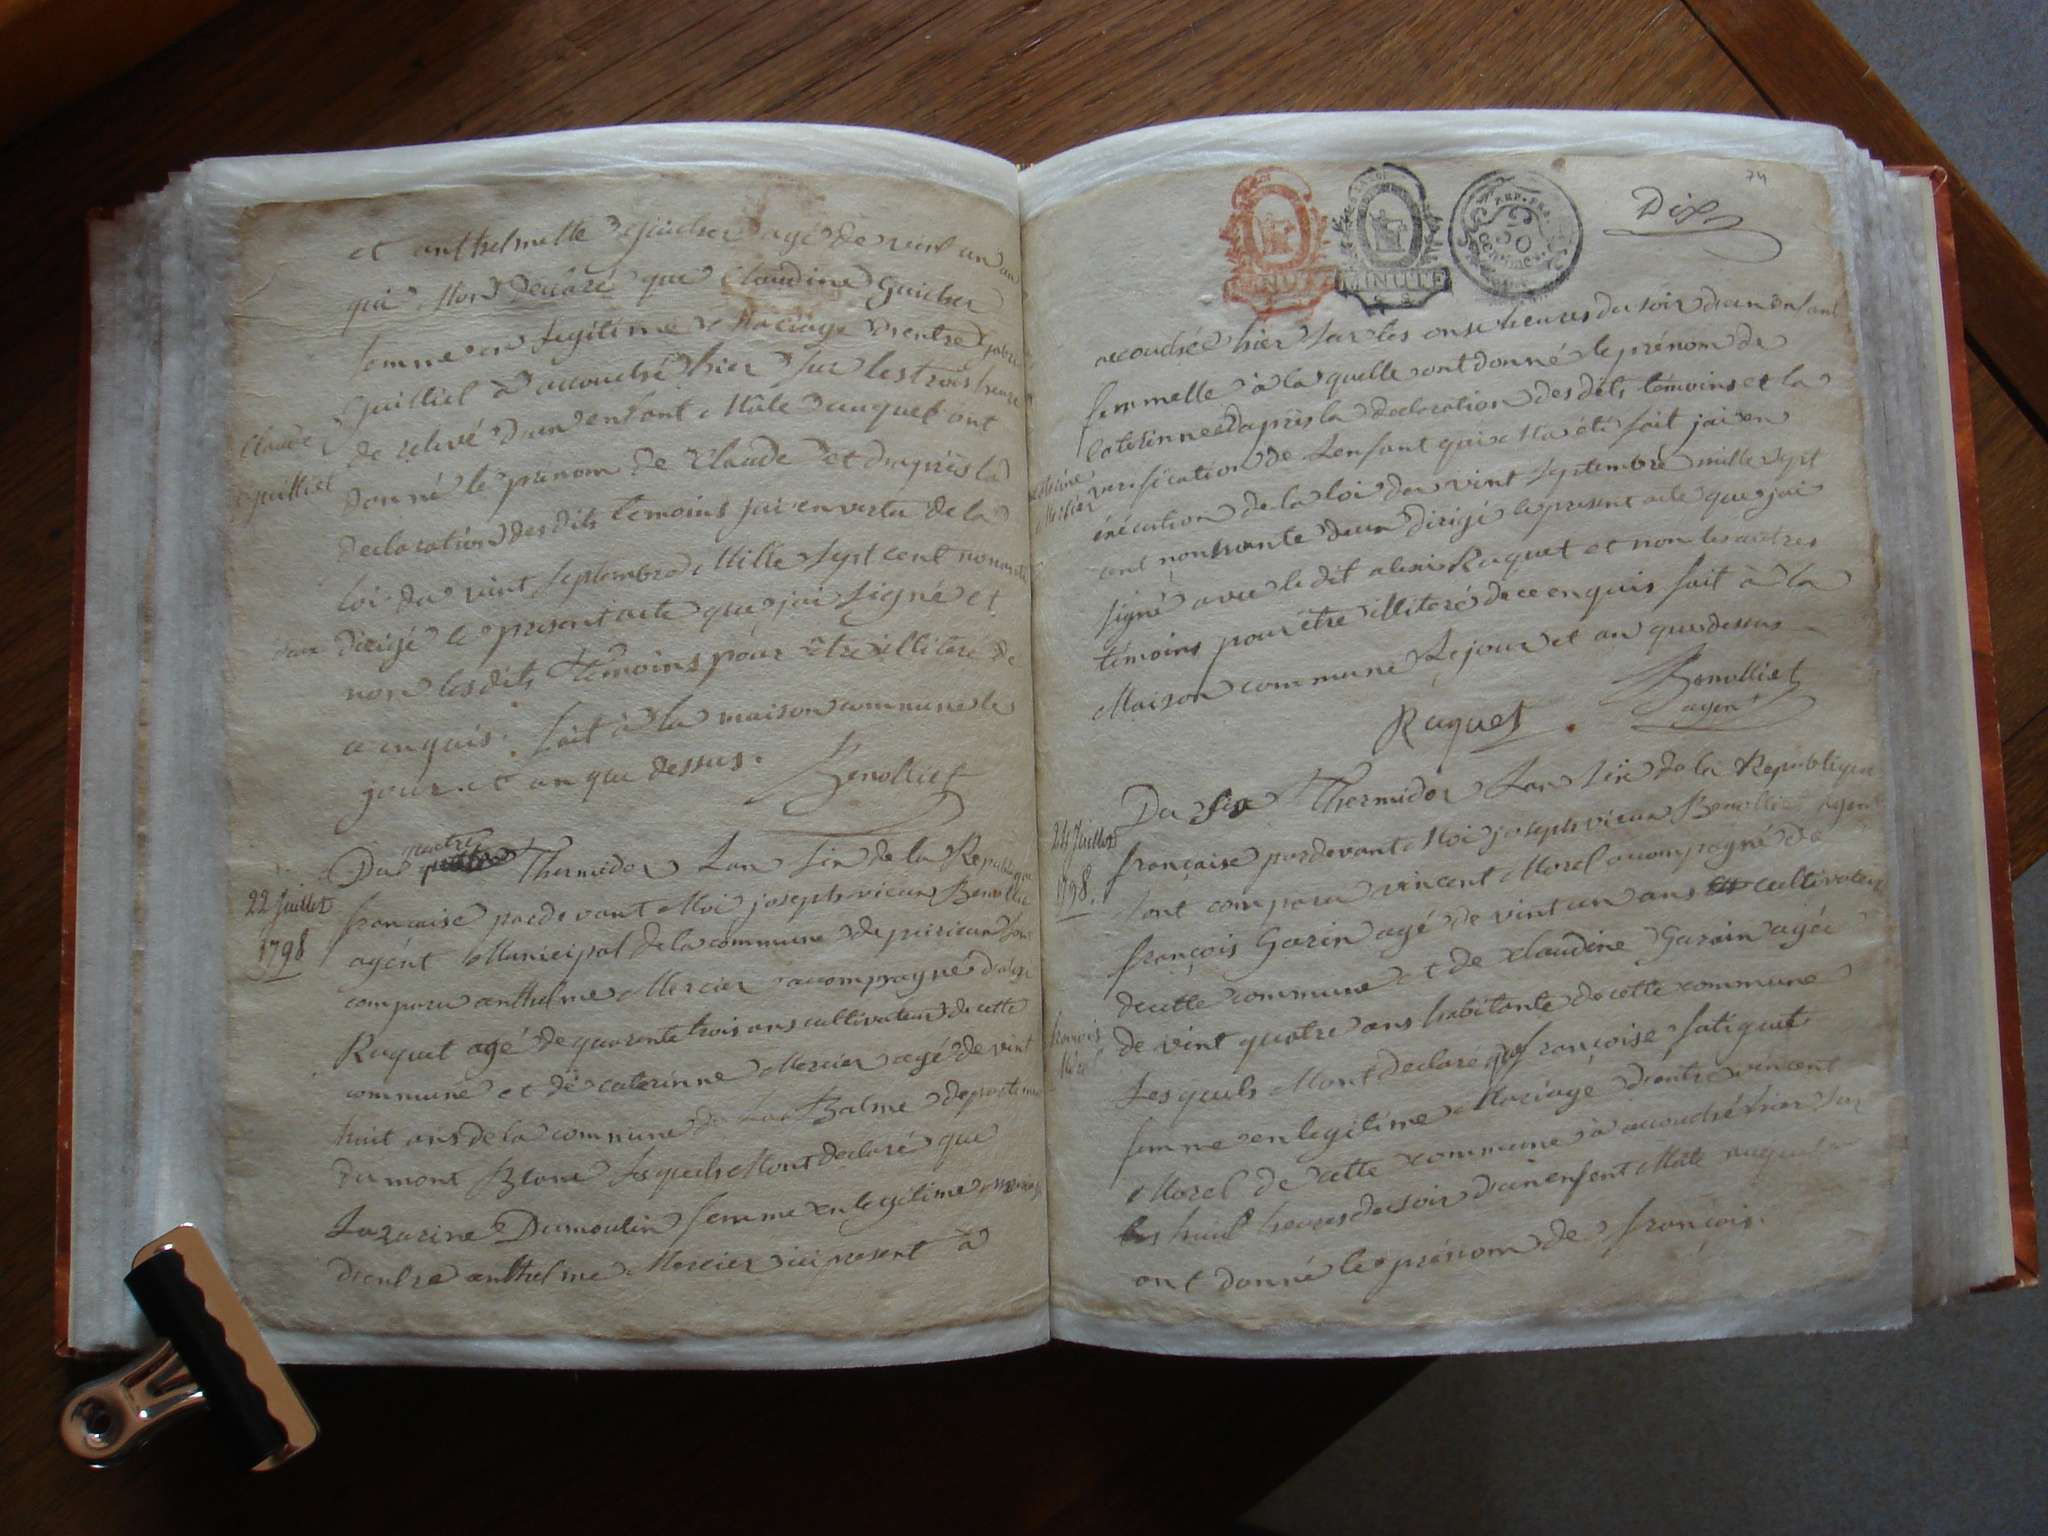 et anthelmette Guicher agé de vint un an
qui mont declaré que Claudine Guicher
femme en legitime Mariage d'entre
Guilliel à accouché hier sur les trois heure
de relevé d'un enfant Mâle auquel ont
Claude
Guilliel
donné le prénom de Claude et d'après la
declaration des dits temoins jai en vertu de la
loi du vint septembre Mille sept cent nonante
deux dirigé le present acte que jai signé et
non les dits temoins pour être illiteré de
ce enquis. fait à la maison commune le
jour et an que dessus.
Benolliet
22 Juillet
1798
Du quatre Thermidor Lan six de la Republique
française pardevant Moi joseph vieux Benolliet
agent Municipal de la commune de peirieux sont
comparu anthelme Mercier accompagné d'alexi
Ruquet agé de quarente trois ans cultivateur de cette
commune et de caterinne Mercier agé de vint
huit ans de la commune de La Balme departement
du mont Blanc lesquels Mont declaré que
Lazarine Dumoulin femme en legitime mariage
d'entre anthelme Mercier ici present à
74
Dix
MINUTE
MINUTE
REP. FRA.
50
CENTIMES
accouché hier sur les onse heures du soir d'un enfant
femmelle à la quelle ont donné le prénom de
Caterinne d'après la declaration des dits témoins et la
Mercier
verification de Lenfant qui Ma été fait jai en
éxécution de la loi du vint septembre mille sept
cent nonnante deux dirigé le present acte que jai
signé avec le dit alexi Ruquet et non les autres
témoins pour être illiteré de ce enquis fait à la
Maison commune Le jour et an que dessus
Ruquet
Benolliet
agent
24 Juillet
1798.
Du six Thermidor Lan six de la Republique
française pardevant Moi joseph vieux Benolliet agent
sont comparu vincent Morel accompagné de
françois Garin agé de vint un ans cultivateur
de cette commune et de claudine Garin agée
de vint quatre ans habitante de cette commune
françois
Morel
Lesquels Mont declaré que françoise fatiquet
femme en legitime Mariage d'entre vincent
Morel de cette commune à accouché hier sur
les huit heures du soir d'un enfent Mâle auquel
ont donné le prénom de françois.